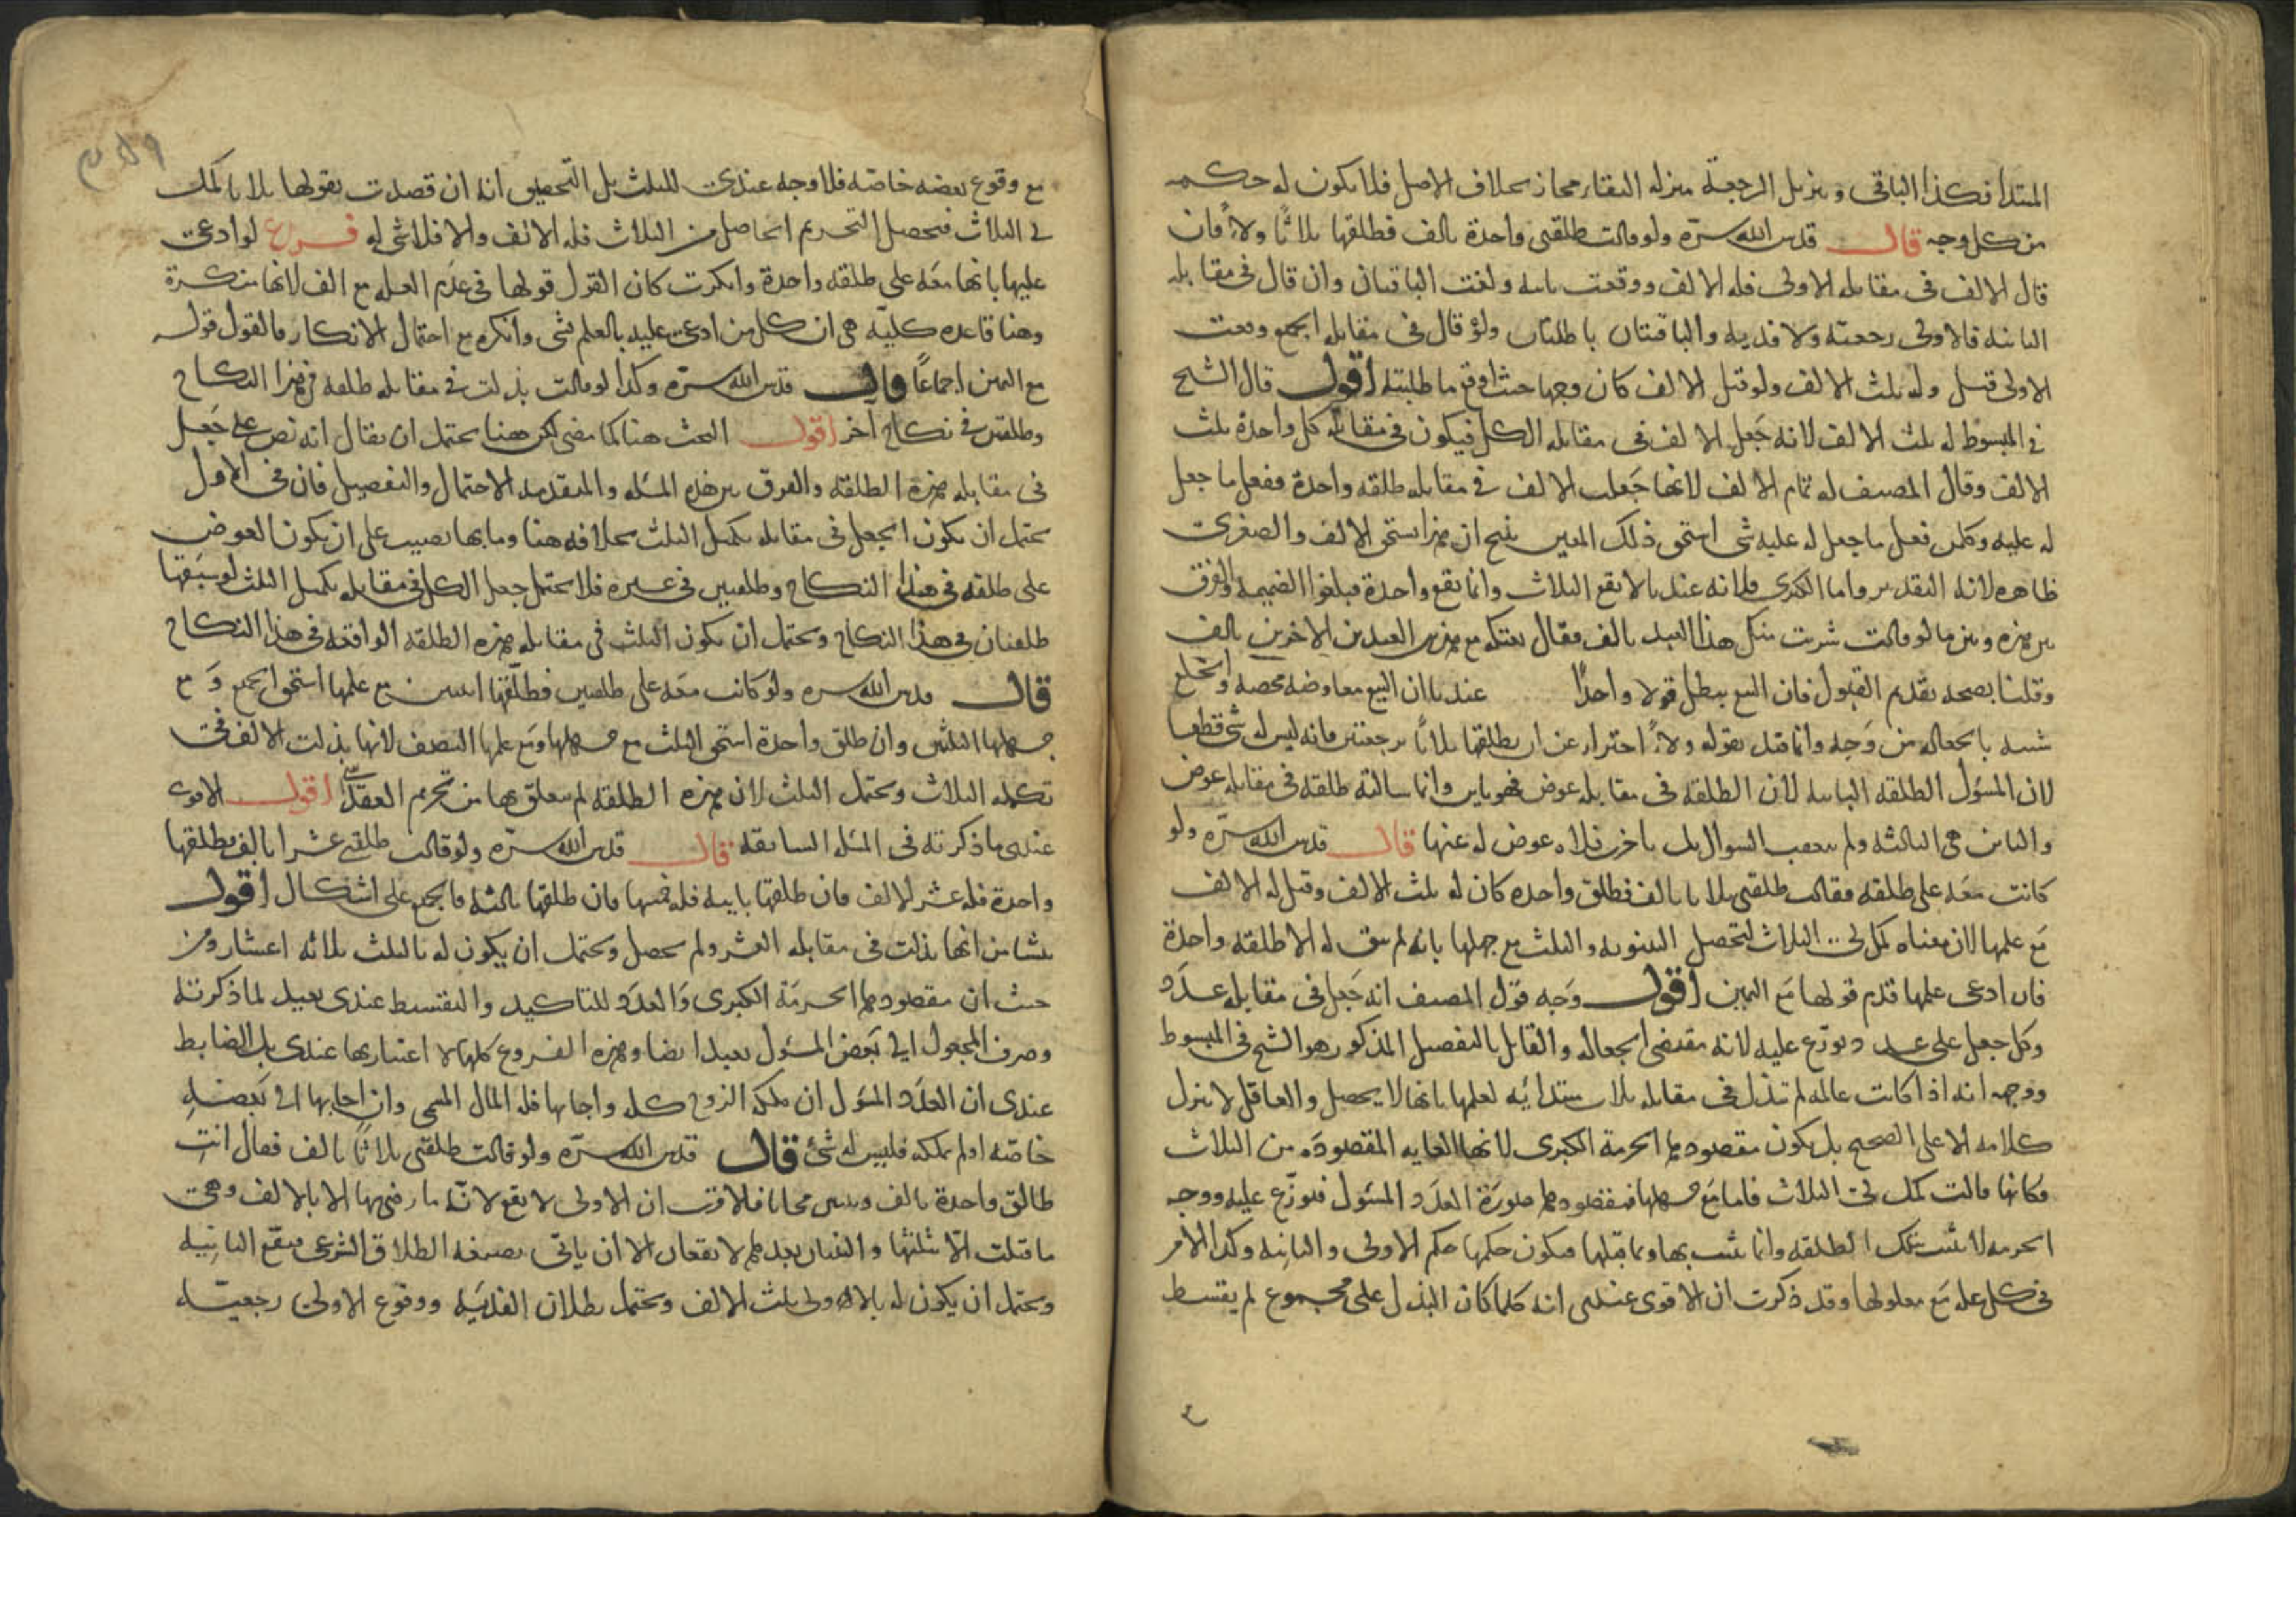 المبتدأ فكذا الباقى وتنزيل الرجعة منزله البقاء مجاز بخلاف الاصل فلا يكون له حكمه
من كل وجه قال قدس الله سره ولو قالت طلقنى واحدة بالف فطلقها ثلاثا ولاءً فان
قال الالف فى مقابله الاولى فله الالف ووقعت باينه ولغت الباقيتان وان قال فى مقابله
الثانيه فالاولى رجعيه ولا فديه والباقيتان باطلتان ولو قال فى مقابله الجميع وقعت
الاولى قيل وله ثلث الالف ولو قيل الالف كان وجها حيث اوقع ما طلبته اقول قال الشيخ
فى المبسوط له ثلث الالف لانه جعل الالف فى مقابله الكل فيكون فى مقابله كل واحدة ثلث
الالف وقال المصنف له تمام الالف لانها جعلت الالف فى مقابله طلقه واحدة ففعل ما جعل
له عليه وكلمن فعل ما جعل له عليه شى استحق ذلك المعين ينتج ان هذا استحق الالف والصغرى
ظاهره لانه التقدير واما الكبرى فلانه عندنا لا يقع الثلاث وانما يقع واحدة فيلغوا الضميمه والفرق
بين هذه وبين ما لو قالت شريت منك هذا العبد بالف فقال بعتكه مع هذين العبدين الاخرين بالف
وقلنا بصحه تقديم القبول فان البيع يبطل قولا واحدًا عندنا ان البيع معاوضه محصه والخلع
شبيه بالجعاله من وجه وانما قيد بقوله ولاءً احتراز عن ان يطلقها ثلاثا برجعتين فانه ليس له شى قطعا
لان المسؤل الطلقه الباينه لان الطلقه فى مقابله عوض فهو باين وانما سالته طلقه فى مقابله عوض
والباين هى الثالثه ولم يتعقب السوال بل تاخرت فلا عوض له عنها قال قدس الله سره ولو
كانت معه على طلقه فقالت طلقنى ثلاثا بالف فطلق واحده كان له ثلث الالف وقيل له الالف
مع علمها لان معناه كمل لى الثلاث لتحصل البينونه والثلث مع جهلها بانه لم يبق له الا طلقه واحدة
فان ادعى علمها قدم قولها مع اليمين اقول وجه قول المصنف انه جعل فى مقابله عدد
وكل جعل على عدد توزع عليه لانه مقتضى الجعاله والقايل بالتفصيل المذكور هو الشيخ فى المبسوط
ووجهه انه اذا كانت عالمه لم تبذل فى مقابله ثلاث مبتدائيه لعلمها بانها لا يحصل والعاقل لا ينزل
كلامه الا على الصحيح بل يكون مقصودهما الحرمة الكبرى لانها الغايه المقصودة من الثلاث
فكانها قالت كمل لى الثلاث فاما مع جهلها فمقصودهما صورة العدد المسئول فتوزع عليه ووجه
الحرمه لا تثبت بتلك الطلقه وانما تثبت بها وبما قبلها فيكون حكمها حكم الاولى والثانيه وكذا الامر
فى كل عله مع معلولها وقد ذكرت ان الاقوى عندى انه كلما كان البذل على مجموع لم يقتسط
مع وقوع بعضه خاصه فلا وجه عندى للثلث بل التحقيق انه ان قصدت بقولها ثلاثا كمك
فى الثلاث فتحصل التحريم الحاصل من الثلاث فله الالف والا فلا شى له فرع لو ادعى
عليها بانها معه على طلقه واحدة وانكرت كان القول قولها فى عدم العلم مع الف لانها منكرة
وهنا قاعده كليه هى ان كل من ادعى عليه بالعلم بشى وانكره مع احتمال الانكار فالقول قوله
مع اليمين اجماعاً قال قدس الله سره وكذا لو قالت بذلت فى مقابله طلقه فى هذا النكاح
وطلقتين فى نكاح اخر اقول البحث هنا كما مضى لكن هنا يحتمل ان يقال انه نص على جعل
فى مقابله هذه الطلقه والفرق بين هذه المسئله والمتقدمه الاحتمال والتفصيل فان فى الاول
يحتمل ان يكون الجعل فى مقابله تكميل الثلث بخلافه هنا وما بها نصيب على ان يكون العوض
على طلقه فى هذا النكاح وطلقتين فى غيره فلا يحتمل جعل الكل فى مقابله تكميل الثلث لو سبقها
طلقتان فى هذا النكاح ويحتمل ان يكون الثلث فى مقابله هذه الطلقه الواقعه فى هذا النكاح
قال قدس الله سره ولو كانت معه على طلقتين فطلقها اثنتين مع علمها استحق الجميع ومع
جهلها الثلثين وان طلق واحدة استحق الثلث مع جهلها ومع علمها النصف لانها بذلت الالف فى
تكمله الثلاث ويحتمل الثلث لان هذه الطلقه لم يتعلق بها من تحريم العقد شى اقول الاقوى
عندى ما ذكرته فى المسئله السابقه قال قدس الله سره ولو قالت طلقنى عشرا بالف فطلقها
واحدة فله عشر الالف فان طلقها ثانيه فله خمسها فان طلقها ثالثه فالجميع على اشكال اقول
ينشا من انها بذلت فى مقابله العشر ولم يحصل ويحتمل ان يكون له بالثلث ثلاثه اعشار ومن
حيث ان مقصودهما الحرمة الكبرى والعدد للتاكيد والتقسيط عندى بعيد لما ذكرته
وصرف المجعول الى بعض المسئول بعيد ايضا وهذه الفروع كلها لا اعتبار بها عندى بل الضابط
عندى ان العدد المسؤل ان ملكه الزوج كله واجابها فله المال المسمى وان اجابها الى بعضه
خاصه او لم يملكه فليس له شئ قال قدس الله سره ولو قالت طلقنى ثلاثاً بالف فقال انتِ
طالق واحدة بالف وثنتين مجانا فالاقرب ان الاولى لا يقع لانه ما رضى بها الا بالالف وهى
ما قبلت الا بثلثها والثنتان بعدها لا يقعان الا ان ياتى بصيغه الطلاق الشرعى فيقع الثانيه
ويحتمل ان يكون له بالاولى ثلث الالف ويحتمل بطلان الفديه ووقوع الاولى رجعيه